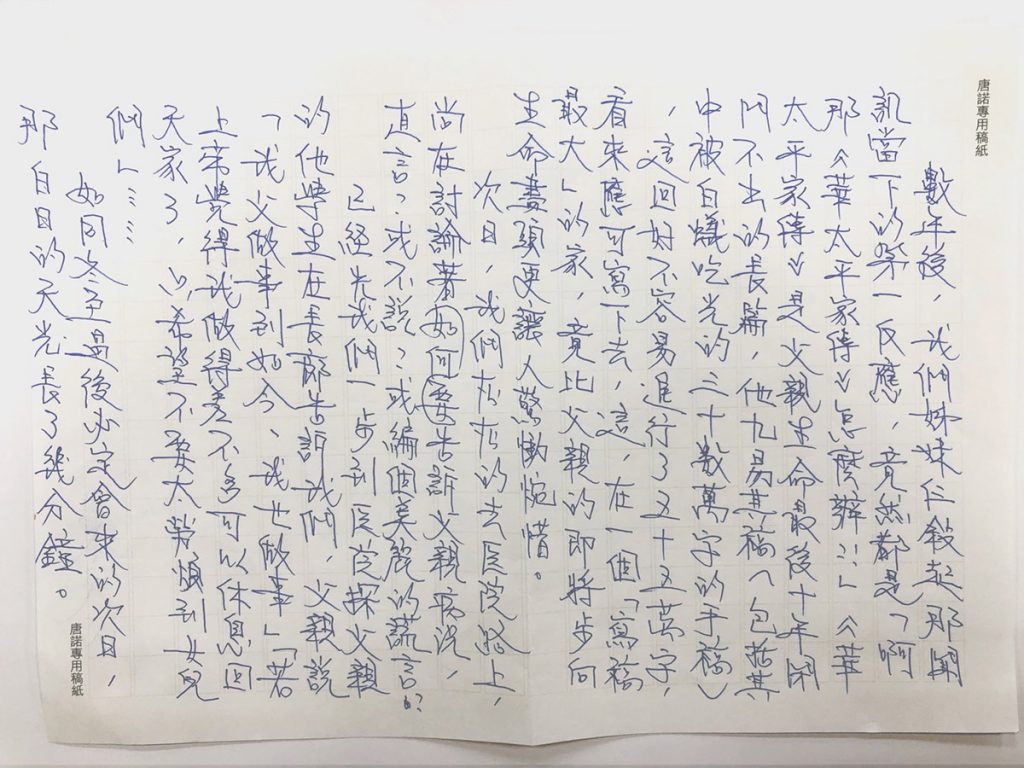 唐諾專用稿紙
數年後，我們姊妹仨敍起那聞
訊當下的第一反應，竟然都是「啊
那《華太平家傳》怎麼辦?!」《華
太平家傳》是父親生命最後十年閉
門不出的長篇，他九易其稿（包括其
中被白蟻吃光的三十數萬字的手稿）
，這回好不容易進行了五十五萬字，
看來應可寫下去，這，在一個「寫稿
最大」的家，竟比父親的即將步向
生命盡頭更讓人驚慟惋惜。
次日，我們的去医院路上，
尚在討論著如何要告訴父親病況，
直言？或不說？或編個美麗的謊言?
已經先我們一步到医院探父親
的他學生在長廊告訴我們，父親說
「我父做事到如今、我也做事」「若
上帝覺得我做得差不多可以休息回
天家了，只希望不要太勞煩到女兒
們」……
如同冬至過後必定會來的次日，
那白日的天光長了幾分鐘。
唐諾專用稿紙